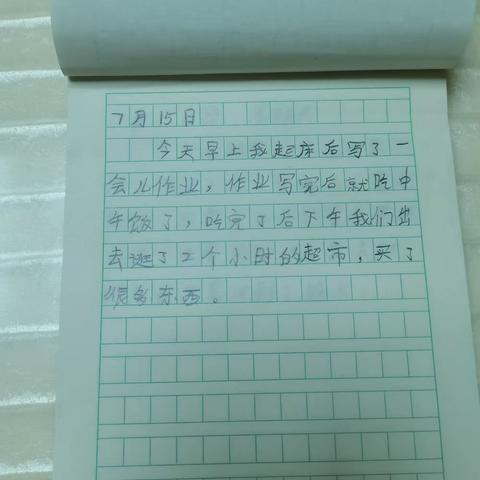 7月15日
今天早上我起床后写了一
会儿作业，作业写完后就吃中
午饭了，吃完了后下午我们出
去逛了2个小时的超市，买了
很多东西。